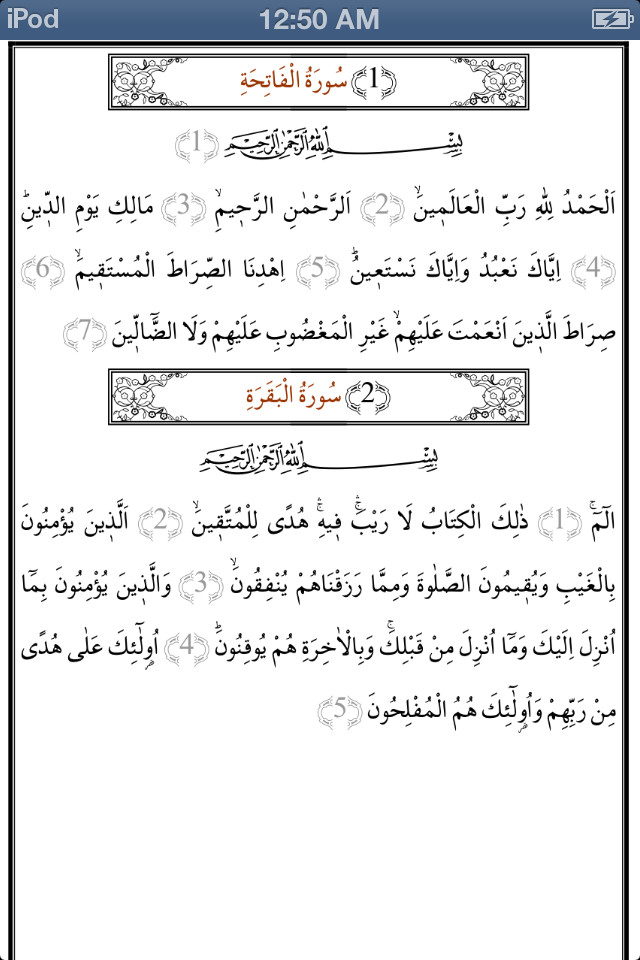 iPod 12:50 AM
(1) سُورَةُ الْفَاتِحَةِ
بِسْمِ اللّٰهِ الرَّحْمٰنِ الرَّحِيمِ (1)
اَلْحَمْدُ لِلّٰهِ رَبِّ الْعَالَمٖينَۙ (2) اَلرَّحْمٰنِ الرَّحٖيمِۙ (3) مَالِكِ يَوْمِ الدّٖينِؕ
(4) اِيَّاكَ نَعْبُدُ وَاِيَّاكَ نَسْتَعٖينُؕ (5) اِهْدِنَا الصِّرَاطَ الْمُسْتَقٖيمَۙ (6)
صِرَاطَ الَّذٖينَ اَنْعَمْتَ عَلَيْهِمْۙ غَيْرِ الْمَغْضُوبِ عَلَيْهِمْ وَلَا الضَّٓالّٖينَ (7)
(2) سُورَةُ الْبَقَرَةِ
بِسْمِ اللّٰهِ الرَّحْمٰنِ الرَّحِيمِ
الٓمٓۚ (1) ذٰلِكَ الْكِتَابُ لَا رَيْبَۚۛ فٖيهِۚۛ هُدًى لِلْمُتَّقٖينَۙ (2) اَلَّذٖينَ يُؤْمِنُونَ
بِالْغَيْبِ وَيُقٖيمُونَ الصَّلٰوةَ وَمِمَّا رَزَقْنَاهُمْ يُنْفِقُونَۙ (3) وَالَّذٖينَ يُؤْمِنُونَ بِمَٓا
اُنْزِلَ اِلَيْكَ وَمَٓا اُنْزِلَ مِنْ قَبْلِكَۚ وَبِالْاٰخِرَةِ هُمْ يُوقِنُونَؕ (4) اُو۬لٰٓئِكَ عَلٰى هُدًى
مِنْ رَبِّهِمْ وَاُو۬لٰٓئِكَ هُمُ الْمُفْلِحُونَ (5)